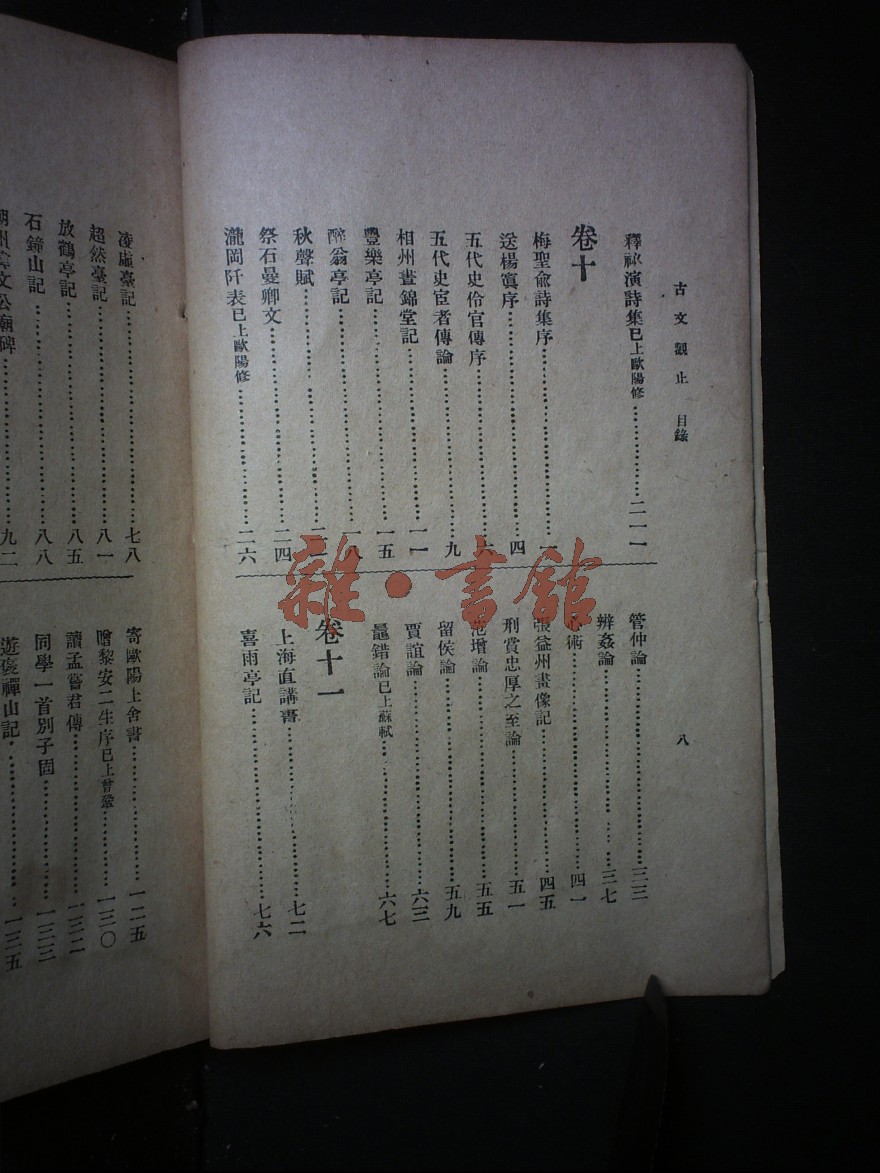 古文觀止 目錄
八
釋祕演詩集已上歐陽修……二一一
卷十
梅聖俞詩集序……一
送楊寘序……四
五代史伶官傳序……六
五代史宦者傳論……九
相州晝錦堂記……一一
豐樂亭記……一五
醉翁亭記……一八
秋聲賦……二
祭石曼卿文……二四
瀧岡阡表已上歐陽修……二六
管仲論……三三
辨姦論……三七
心術……四一
張益州畫像記……四五
刑賞忠厚之至論……五一
范增論……五五
留侯論……五九
賈誼論……六三
鼂錯論已上蘇軾……六七
卷十一
上海直講書……七二
喜雨亭記……七六
凌虛臺記……七八
超然臺記……八一
放鶴亭記……八五
石鐘山記……八八
潮州韓文公廟碑……九二
寄歐陽上舍書……一二五
贈黎安二生序已上曾鞏……一三〇
讀孟嘗君傳……一三二
同學一首別子固……一三三
遊褒禪山記……一三五
雜·書館